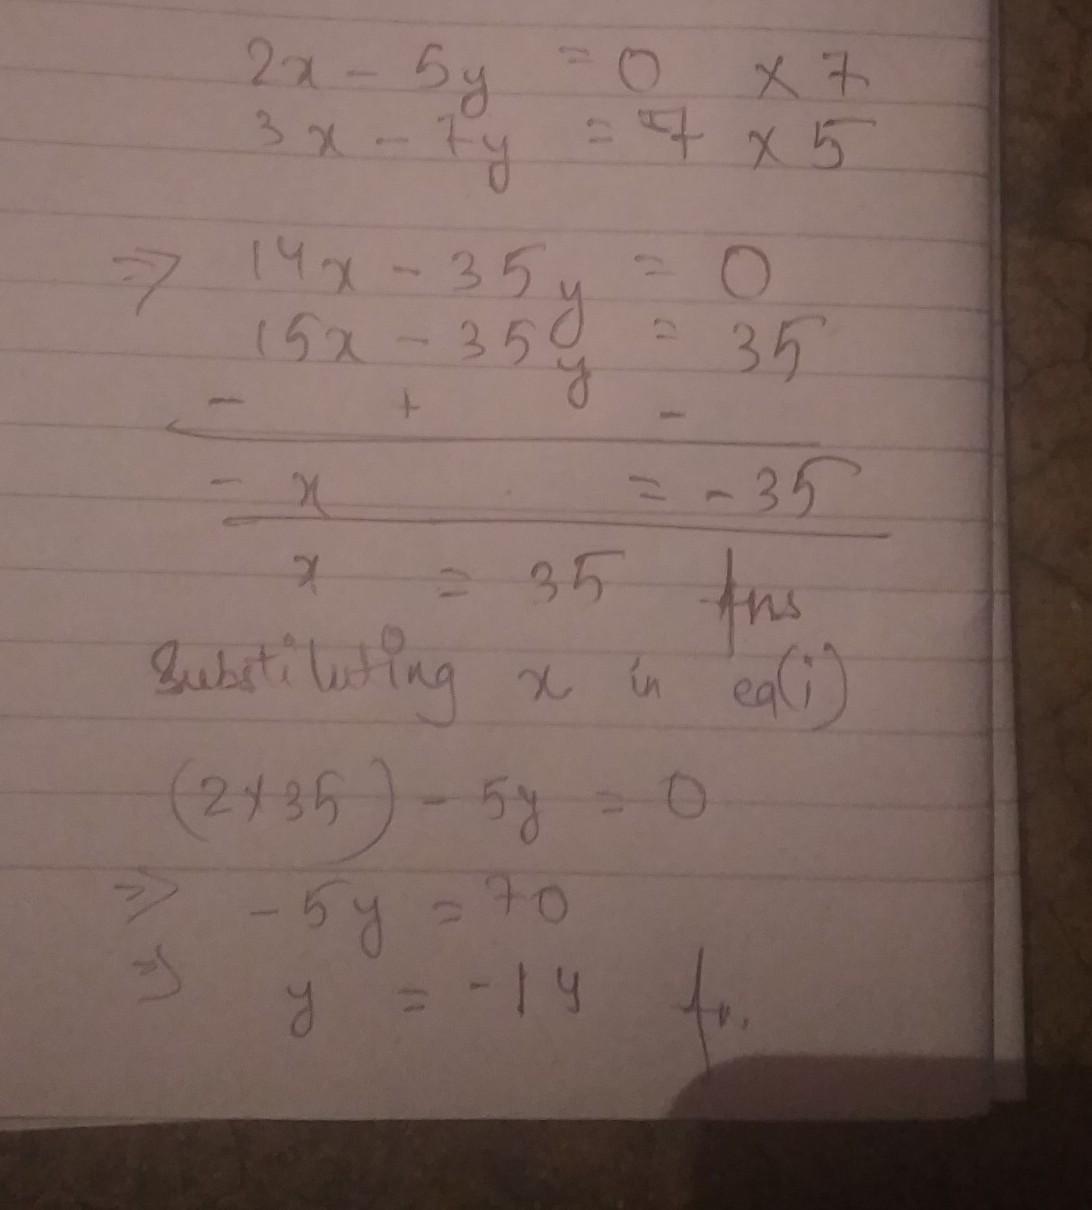 2x - 5y = 0 × 7
3x - 7y = 7 × 5
⇒ 14x - 35y = 0
15x - 35y = 35
- + -
- x = -35
x = 35 Ans
Substituting x in eq(i)
(2×35) - 5y = 0
⇒ -5y = 70
⇒ y = -14